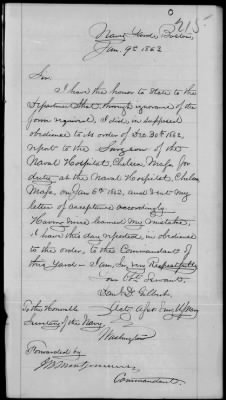 215
Navy Yard Boston
Jan. 9th 1862
Sir
I have the honor to state to the
Department that, through ignorance of the
form required, I did, in supposed
obedience to its order of Dec. 30th 1862,
report to the Surgeon of the
Naval Hospital, Chelsea Mass for
duty at the Naval Hospital, Chelsea
Mass, on Jan 6th 1862, and sent my
letter of acceptance accordingly.
Having since learned my mistake,
I have this day reported in obedience
to the order, to the Commandant of
this Yard — I am, Sir, very Respectfully
Your Obt. Servant.
Dan'l D. Gilbert.
To the Honorable Act. Asst. Surg. U.S. Navy
Secretary of the Navy
Washington
Forwarded by
J B Montgomery
Commandant.